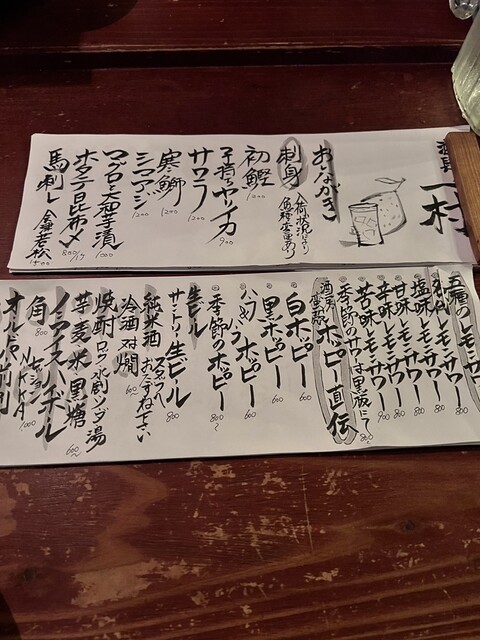 酒具
一村
おしながき
刺身
入荷状況により
魚種変更あり
初鰹
1200
子持ちヤリイカ
900
サワラ
1200
寒鰤
1200
シマアジ
1200
マグロと大和芋漬
1000
ホタテ昆布〆
800
馬刺し
1500
五種のレモンサワー
塩味レモンサワー
800
甘味レモンサワー
800
辛味レモンサワー
800
苦味レモンサワー
900
季節のサワーは黒板にて
800
ホッピー直伝
白ホッピー
600
黒ホッピー
600
ハーフ&ハーフホッピー
600
季節のホッピー
800
生ビール
サントリー生ビール
800
純米酒
スタッフへ
おたずね下さい
冷酒 対 燗
600
焼酎
ロック 水割 ソーダ 湯
芋 麦 米 黒糖
600
ノンアイスハイボール
角
800
1000